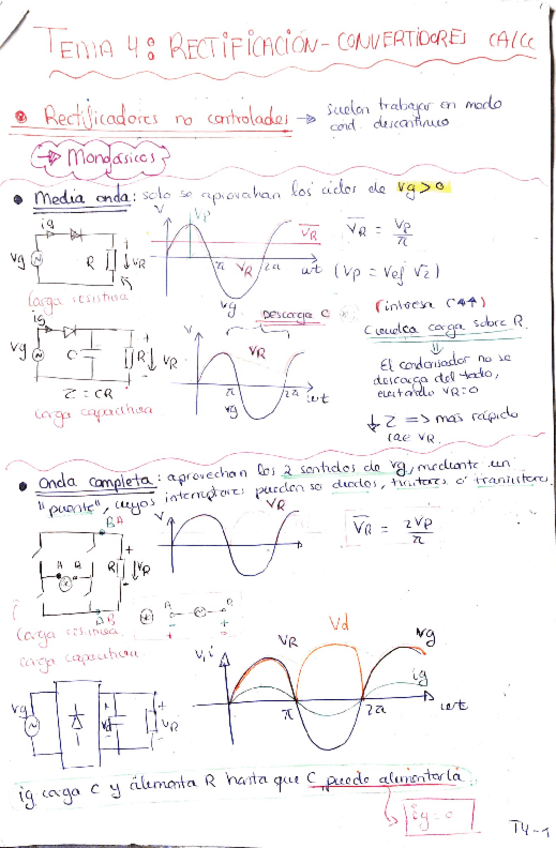 TEMA 4: RECTIFICACIÓN - CONVERTIDORES CA/CC
Rectificadores no controlados → suelen trabajar en modo
cond. descontinuo
→ Monofásicos
Media onda: solo se aprovechan los ciclos de vg > 0
ig
vg
R
VR
Carga resistiva
V
Vp
VR
π
VR
2π
wt
vg
VR = Vp/π
(Vp = Vef √2)
ig
vg
C
R
VR
Z = CR
Carga capacitiva
Descarga C
V
VR
π
2π
wt
vg
Cuando carga sobre R.
⇓
El condensador no se
descarga del todo,
evitando VR=0
↓ Z => más rápido
cae VR.
Onda completa: aprovechan los 2 sentidos de vg, mediante un
"puente", cuyos interruptores pueden ser diodos, tiristores o transistores.
BA
A B
R
VR
V
VR
VR = 2Vp/π
Carga resistiva
carga capacitiva
vg
Vd
VR
V, i
VR
Vd
vg
ig
π
2π
wt
ig carga C y alimenta R hasta que C puede alimentarla
ig = 0
T4-1